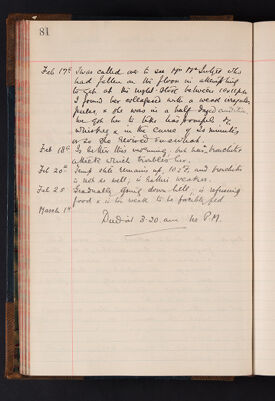 81
Feb 17th I was called up to see Mrs who
had fallen on the floor in attempting
to get at the night-stool between 10 & 11 p.m.
I found her collapsed with a weak irregular
pulse, & she was in a half dazed condition
we got her to take
whiskey & in the course of 20 minutes
or so she revived somewhat.
Feb 18th Is better this morning but has bronchitis
which troubles her.
Feb 20th Temp still remains up, 102°F, and bronchitis
is not so well; is rather weaker.
Feb 25 Gradually going down hill, is refusing
food & is too weak to be forcibly fed
March 1st
Died at 3-20 am No P.M.